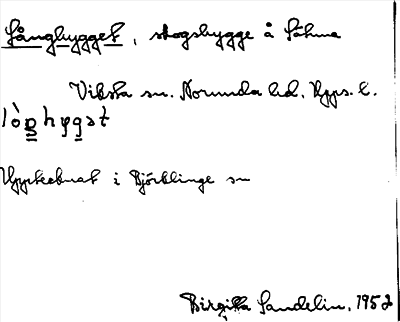 Långhygget, skogshygge å Såhma
Viksta sn. Norunda hd. Upps. l.
Uppteckn. i Björklinge sn
Birgitta Sandelin, 1952